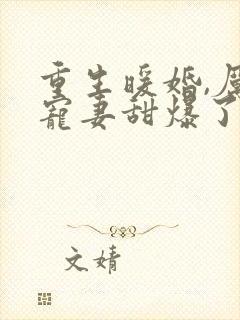 重生暖婚,
宠妻甜爆了
文婧